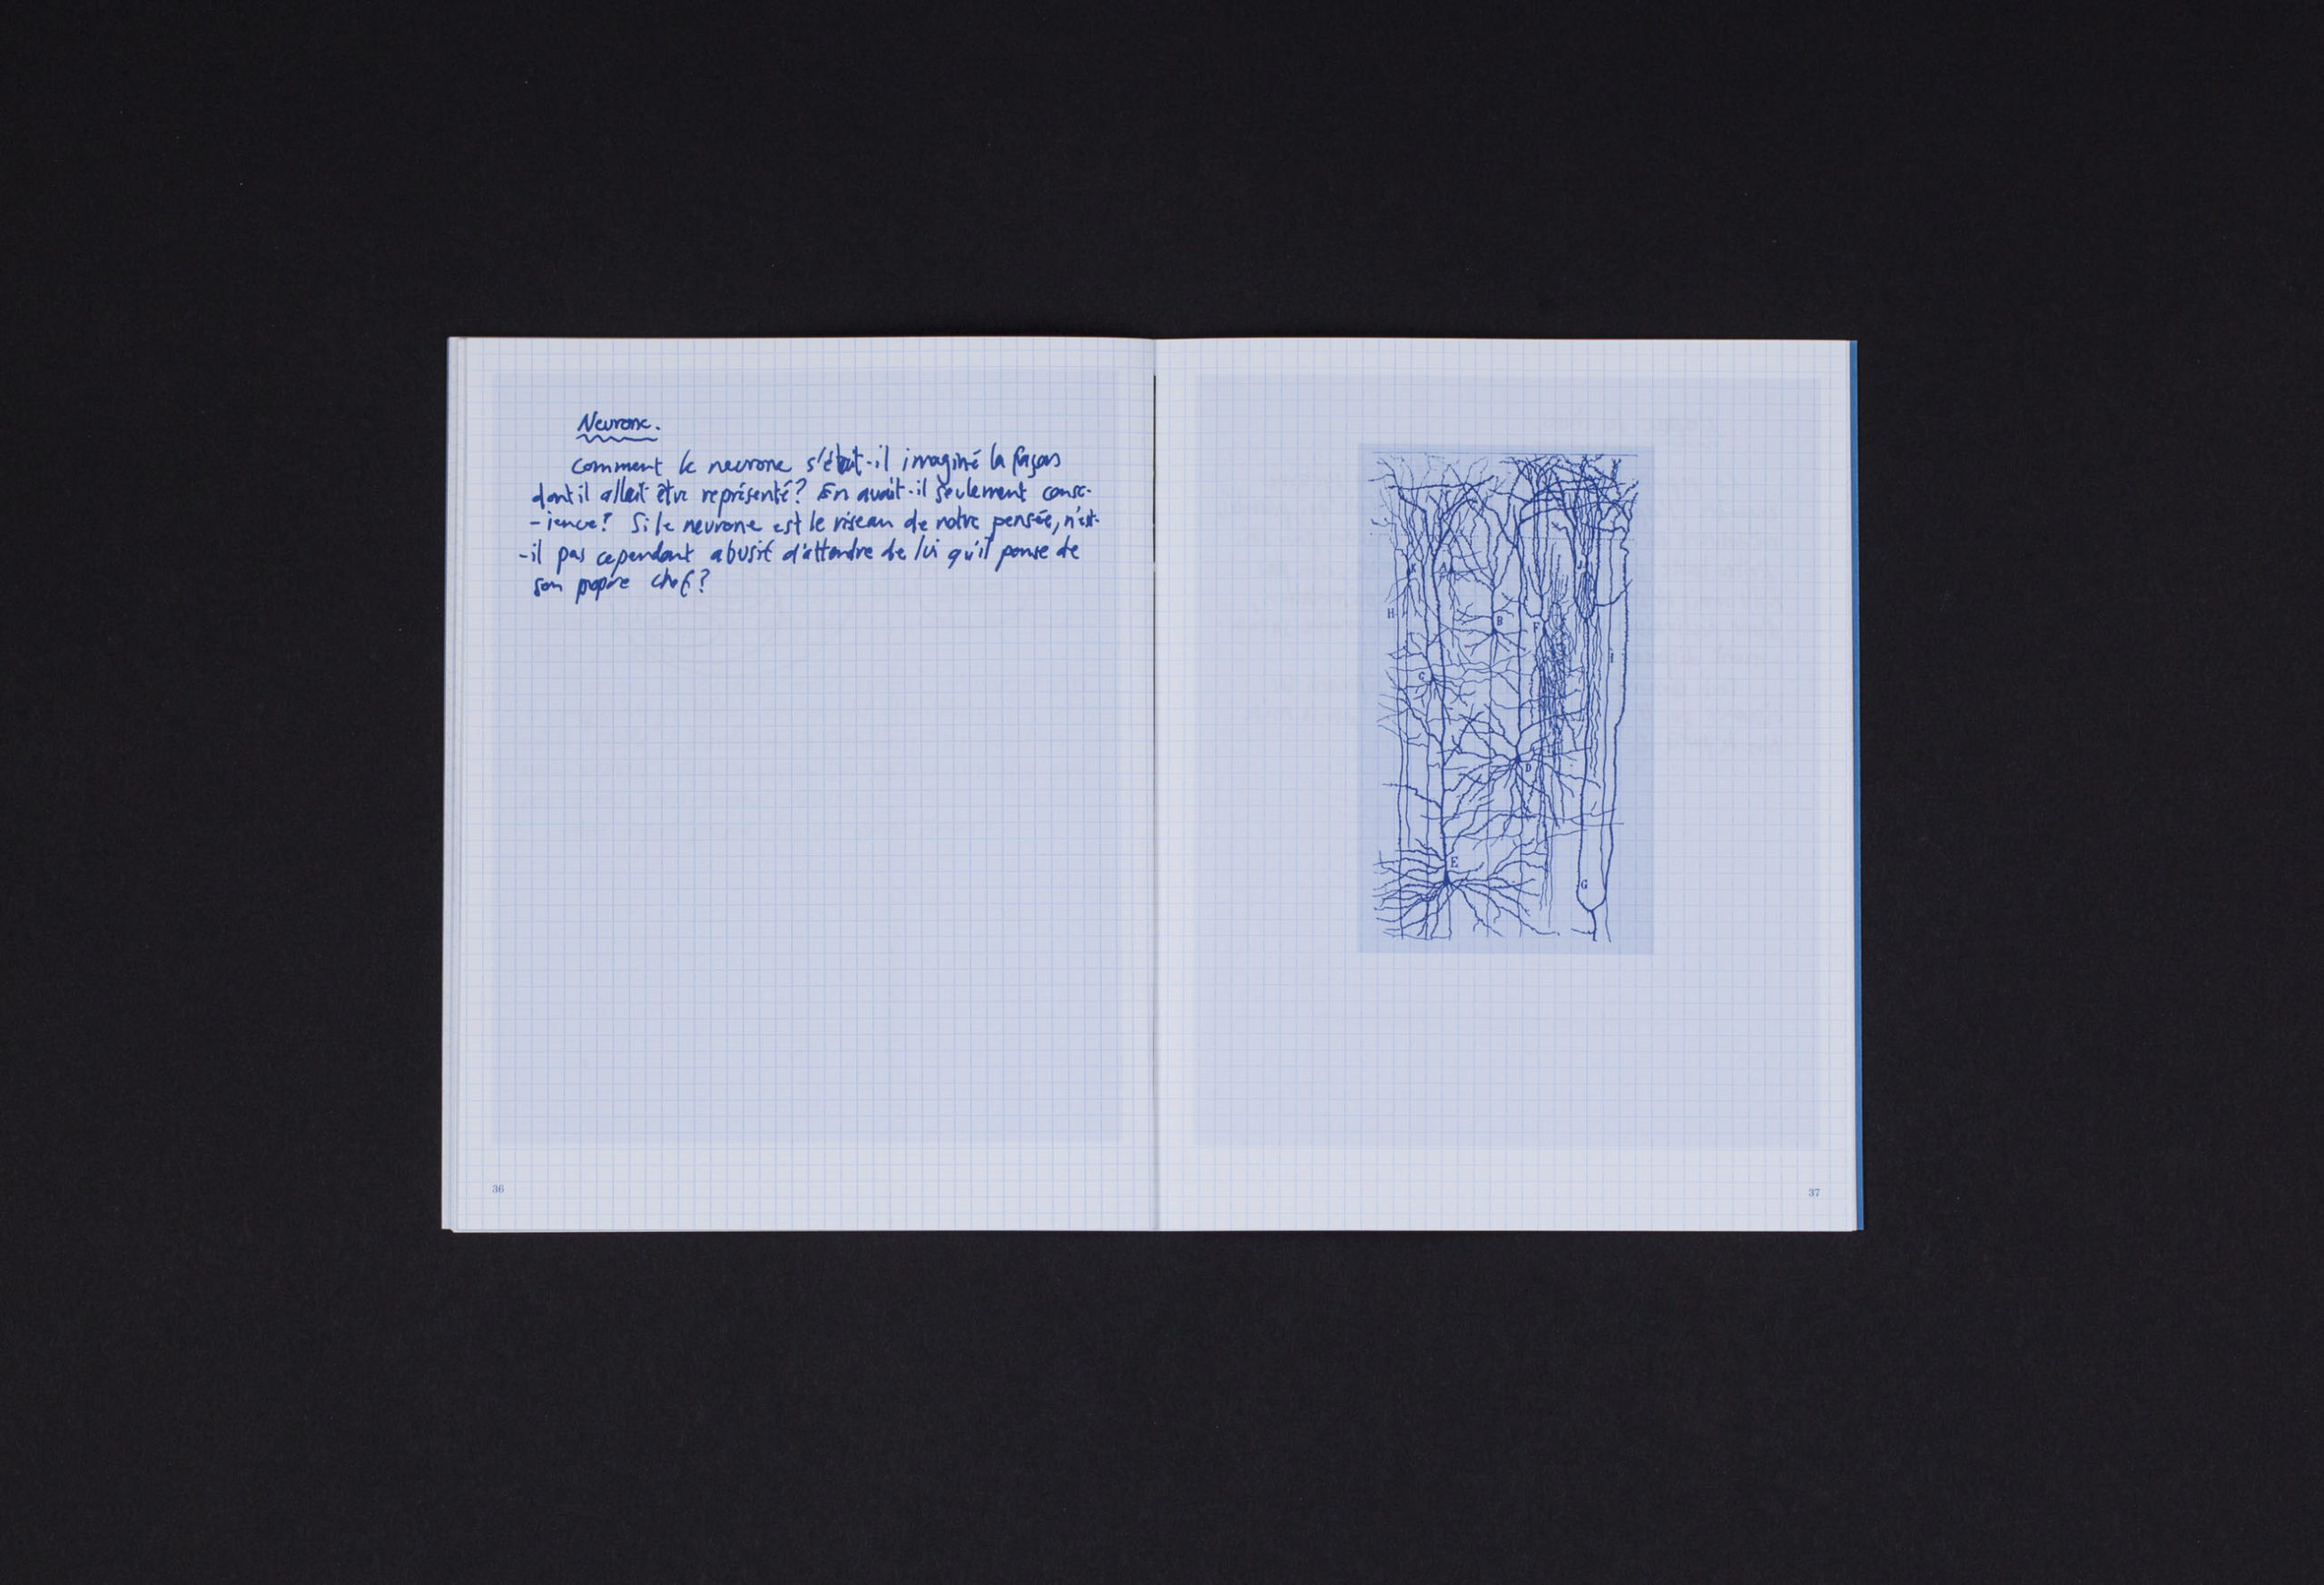 Neurone.
Comment le neurone s'était-il imaginé la façon
dont il allait être représenté? En avait-il seulement consc-
-ience? Si le neurone est le réseau de notre pensée, n'est-
-il pas cependant abusif d'attendre de lui qu'il pense de
son propre chef?
36
A
J
H
B
F
I
C
D
E
G
37